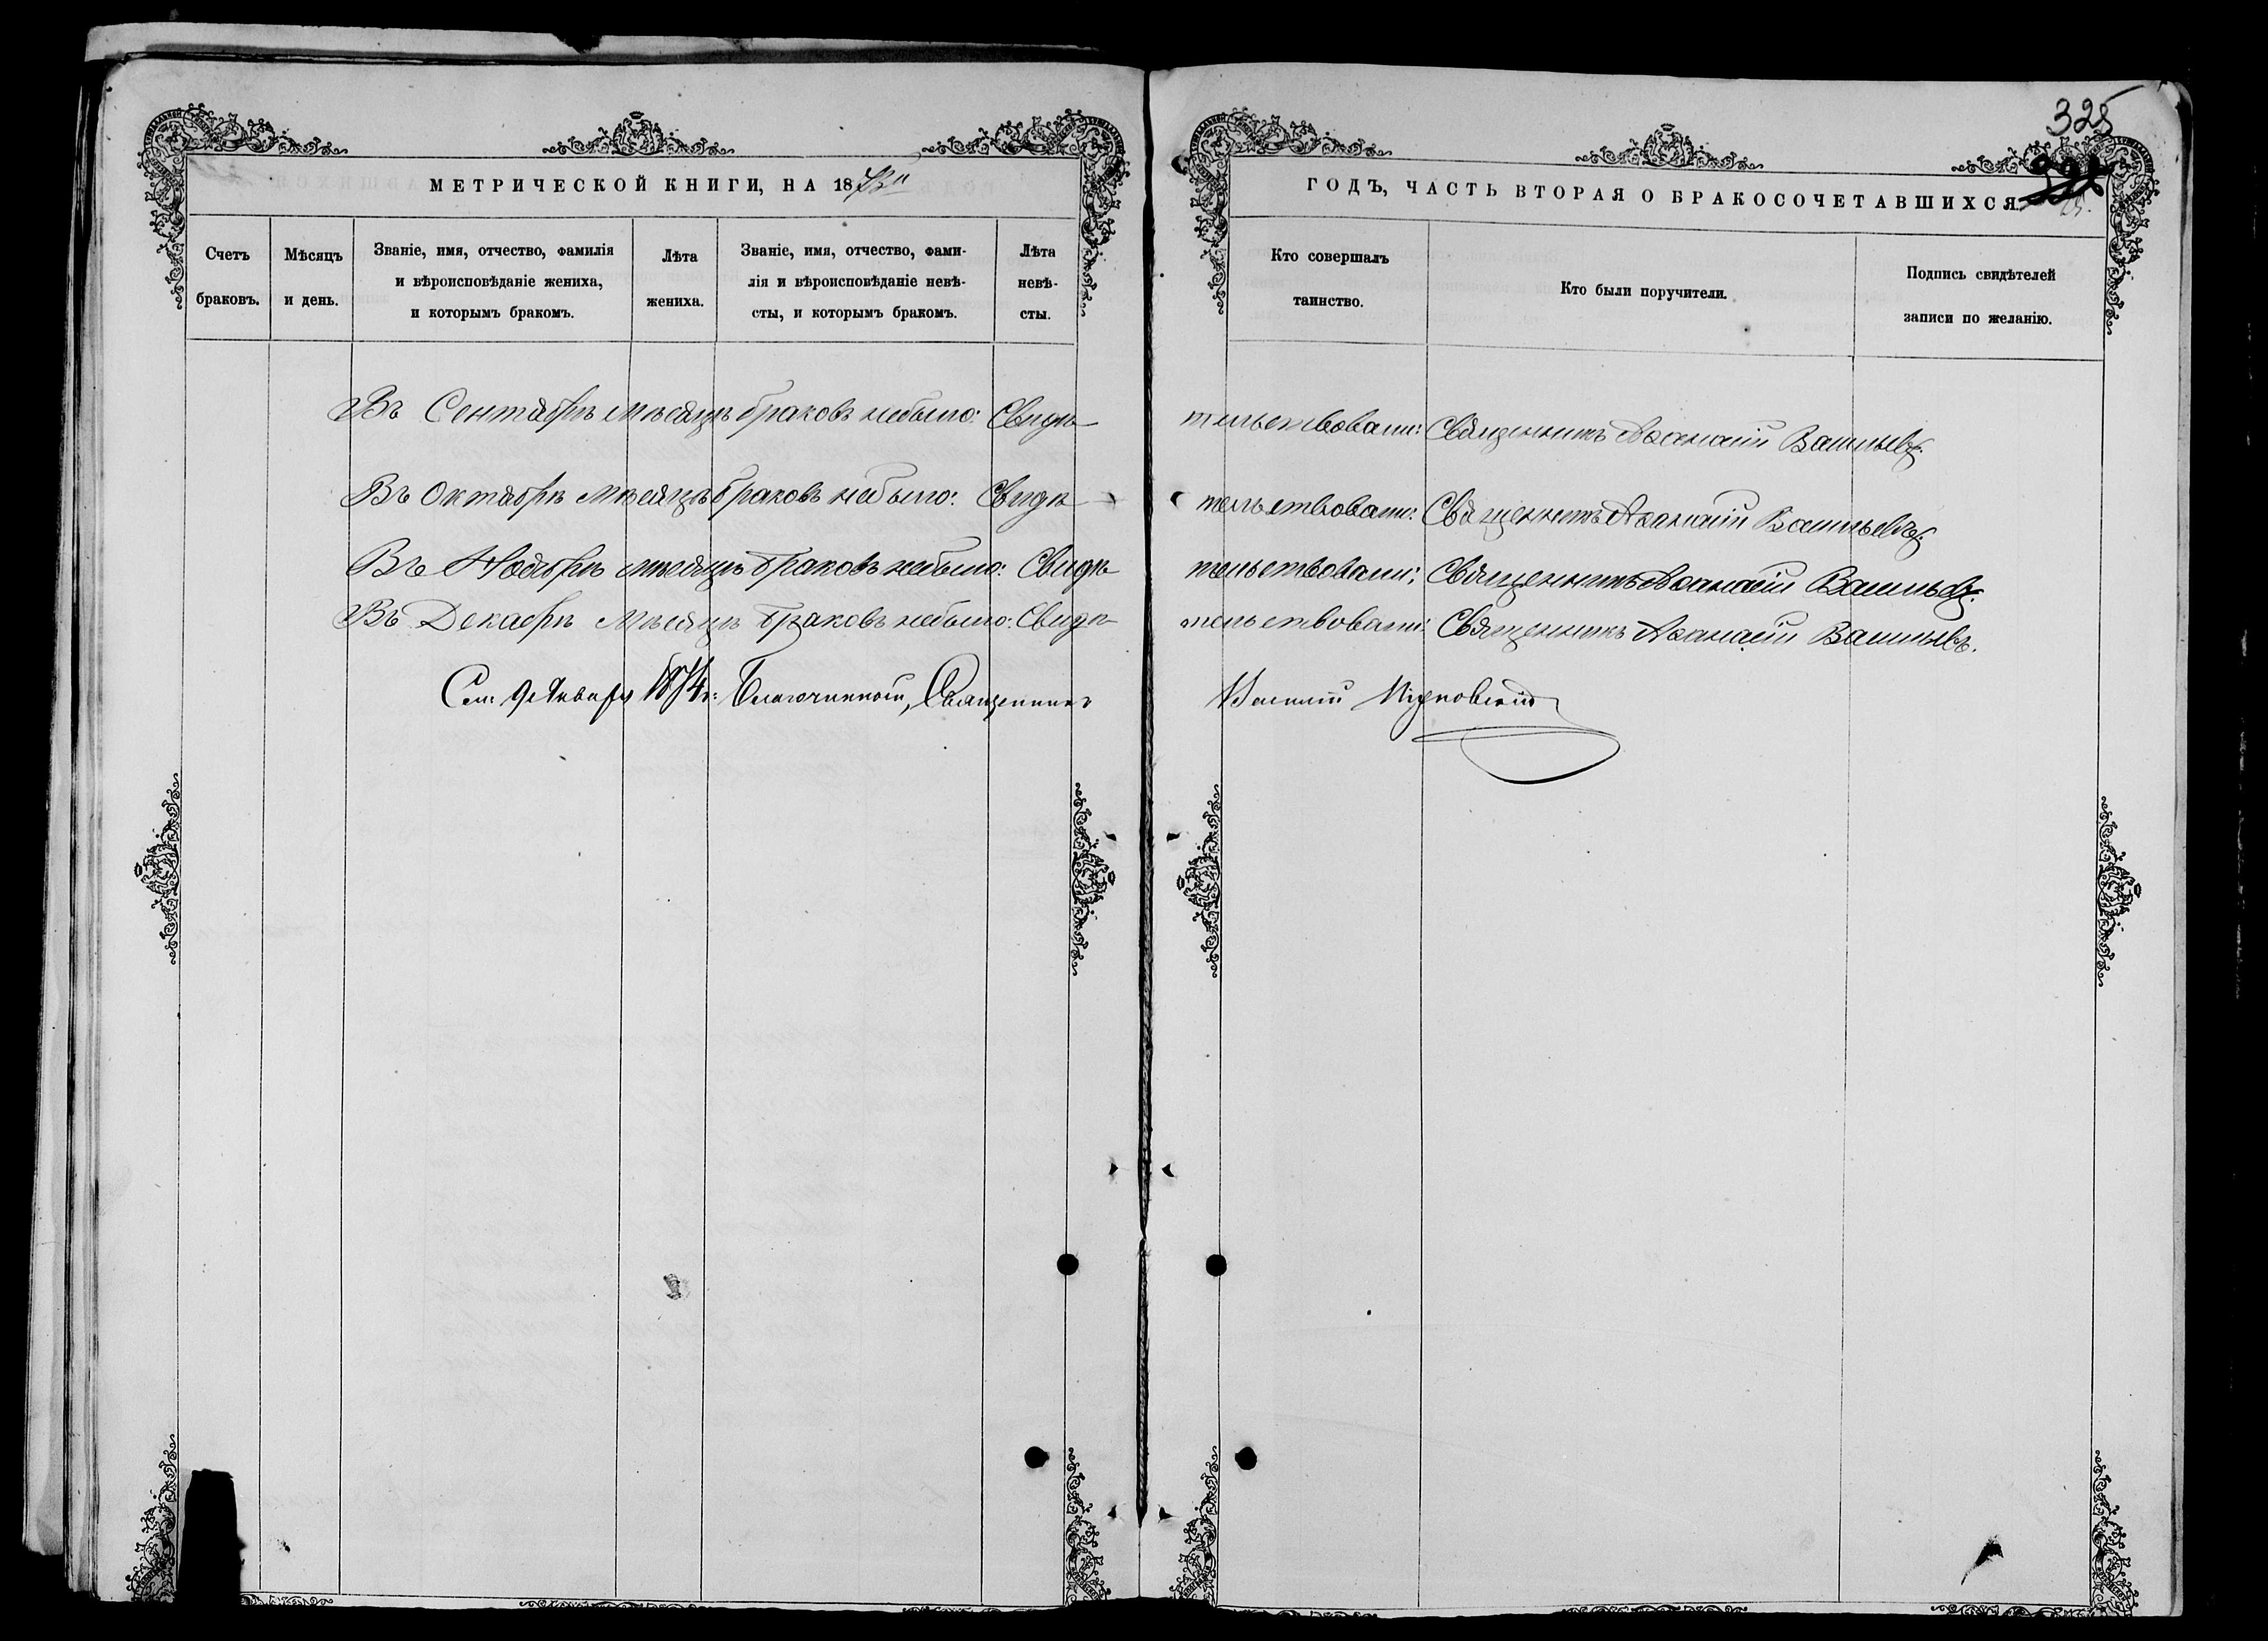 325
МЕТРИЧЕСКОЙ КНИГИ, НА 1873й
ГОДЪ, ЧАСТЬ ВТОРАЯ О БРАКОСОЧЕТАВШИХСЯ.
Счетъ
браковъ.
Мѣсяцъ
и день.
Званіе, имя, отчество, фамилія
и вѣроисповѣданіе жениха,
и которымъ бракомъ.
Лѣта
жениха.
Званіе, имя, отчество, фами-
лія и вѣроисповѣданіе невѣ-
сты, и которымъ бракомъ.
Лѣта
невѣ-
сты.
Кто совершалъ
таинство.
Кто были поручители.
Подпись свидѣтелей
записи по желанію.
Въ Сентябрѣ мѣсяцѣ браковъ небыло: Свидѣ
тельствовали: Священникъ Аѳанасій Васильевъ.
Въ Октябрѣ мѣсяцѣ браковъ небыло: Свидѣ
тельствовали: Священникъ Аѳанасій Васильевъ.
Въ Ноябрѣ мѣсяцѣ браковъ небыло: Свидѣ
тельствовали: Священникъ Аѳанасій Васильевъ.
Въ Декабрѣ Мѣсяцѣ браковъ небыло: Свидѣ
тельствовали: Священникъ Аѳанасій Васильевъ.
9 Января 1874 г: Благочинный, Священникъ
Василій